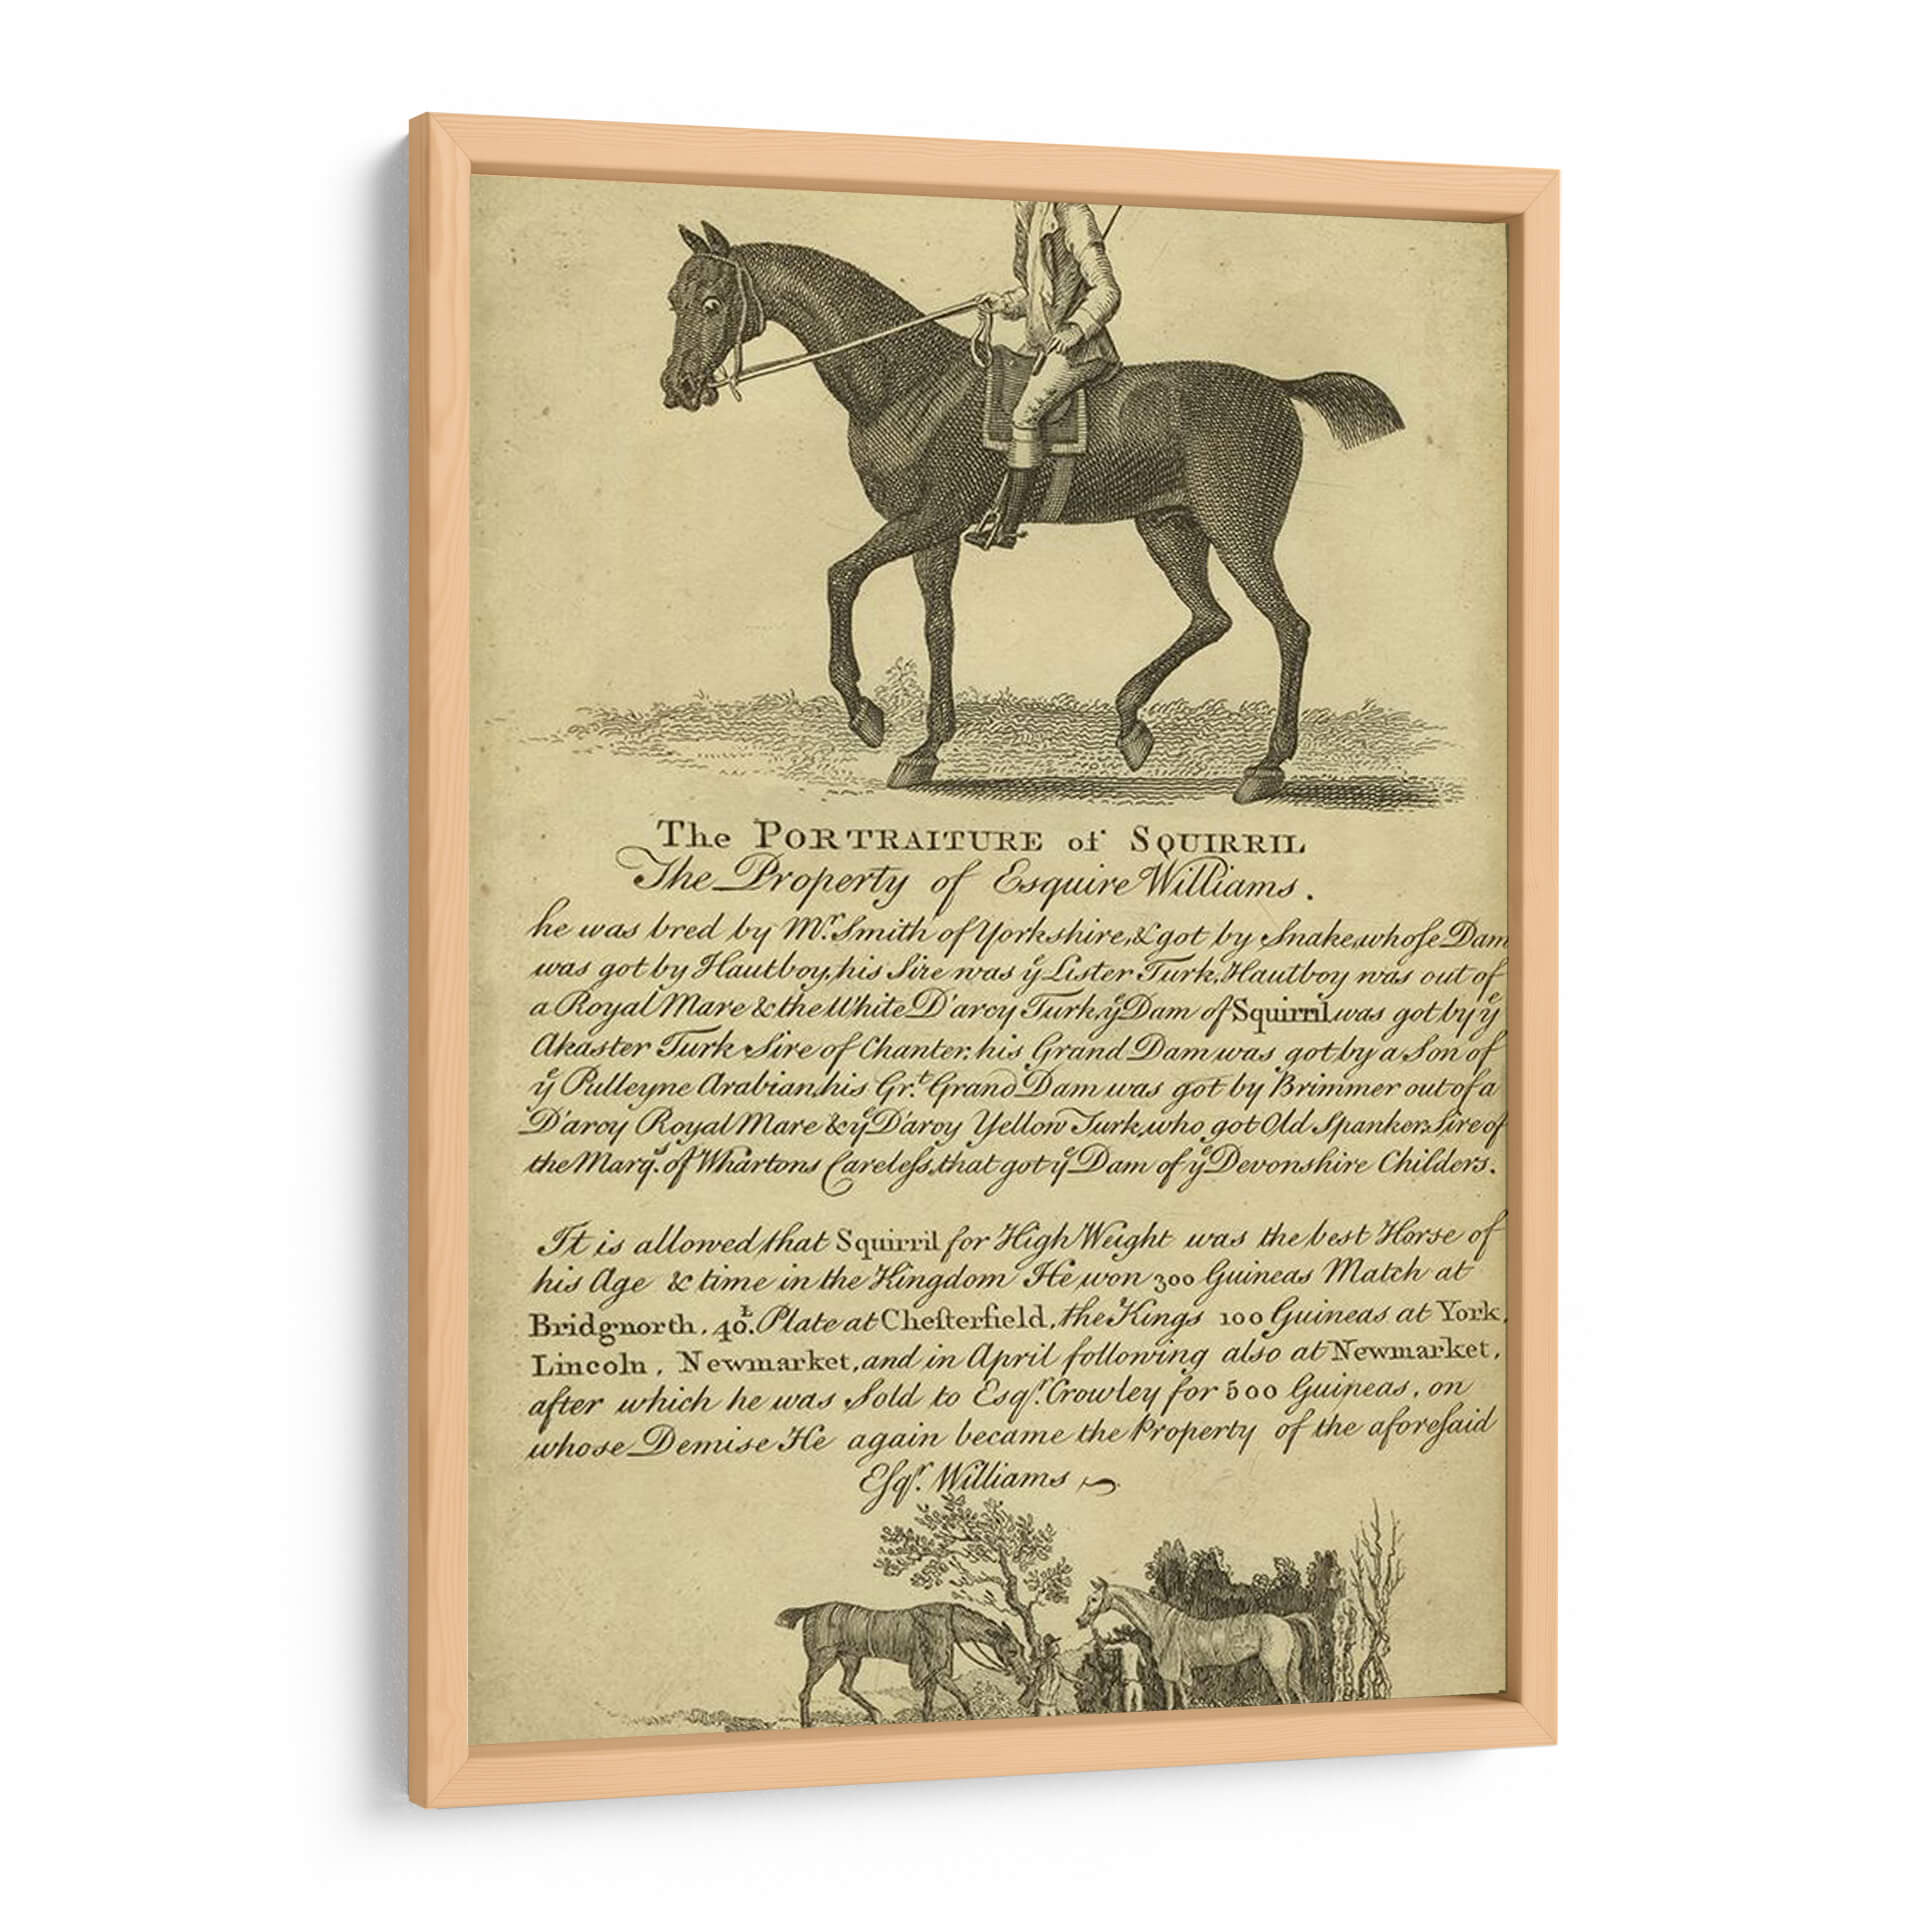 The PORTRAITURE of SQUIRRIL
The Property of Esquire Williams.
he was bred by Mr. Smith of Yorkshire, & got by Snake, whoſe Dam
was got by Hautboy, his Sire was ye Lister Turk, Hautboy was out of
a Royal Mare & the White D'arcy Turk, ye Dam of Squirril was got by ye
Akaster Turk Sire of Chanter, his Grand Dam was got by a Son of
ye Pulleyne Arabian, his Grt. Grand Dam was got by Brimmer out of a
D'arcy Royal Mare & ye D'arcy Yellow Turk, who got Old Spanker, Sire of
the Marqs. of Whartons Careleſs, that got ye Dam of ye Devonshire Childers.
It is allowed that Squirril for High Weight was the best Horse of
his Age & time in the Kingdom He won 300 Guineas Match at
Bridgnorth, 40L. Plate at Cheſterfield, the Kings 100 Guineas at York,
Lincoln, Newmarket, and in April following also at Newmarket,
after which he was Sold to Esqr. Crowley for 500 Guineas, on
whose Demise He again became the Property of the aforeſaid
Eſqr. Williams